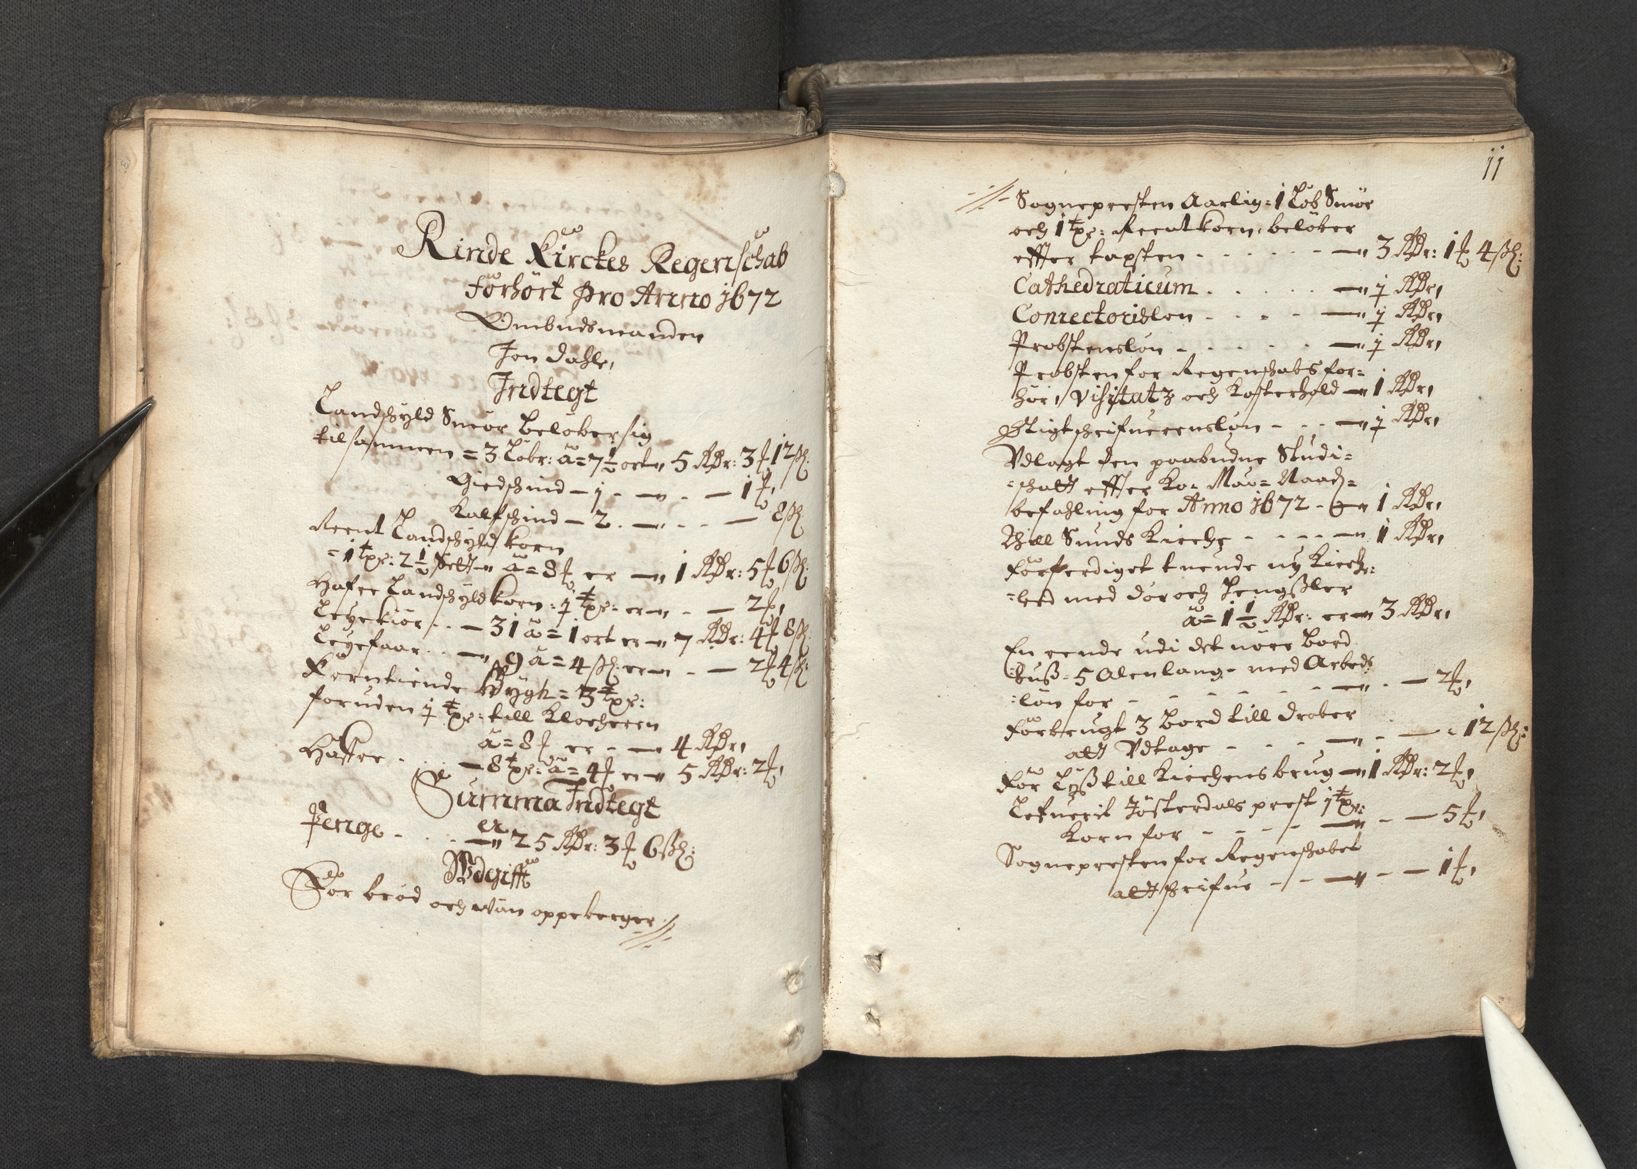 Rinde Kirckes Regenschab
forhört Pro Anno 1672
Ombudsmanden
Jon Dahle,
Indtegt
Landschyld Smör beløber sig
tilsammen = 3 Löbr: a = 7½ ort „ 5 Rdr: 3 ₰ 12 ß:
Giedschind – 1 - — „ - — 1 ₰,
Kalfschind — 2. — „ - - — 8 ß
Reent Landschyld korn
= 1 tr: 2½ Sett „ a = 8 ₰ er — „ 1 Rdr: 5 ₰ 6 ß:
Hafre Landschyld korn: 1 tr: er „ - — 2 ₰,
Leyekiör - - — 31 a = 1 ort er „ 7 Rdr: 4 ₰ 8 ß:
Leyefaar - - — „ 9 a = 4 ß: er „ - — 2 ₰ 4 ß:
Korntiende Bygh = 3 tr:
foruden 1 tr: till Klocheren
a = 8 ₰ er - — 4 Rdr,
Haffre - . — 8 tr: a = 4 ₰ er „ 5 Rdr: 2 ₰,
Summa Indtegt
er
Penge - . . - — „ 25 Rdr: 3 ₰ 6 ß:
Wdgifft
For brød och wiin oppeberger
11
Sognepresten Aarlig: 1 Löb Smör
och 1 tr: Reent korn, beløber
effter taxten - - - - - — „ 3 Rdr: 1 ₰ 4 ß:
Cathedraticum . . . . — „ 1 Rdr,
Conrectorislon - - - - — „ 1 Rdr,
Probstenslön - - - - - — „ 1 Rdr,
Probsten for Regenschabs for-
hör, Visitatz och Kosterhold — „ 1 Rdr,
Stigtschrifuerenslön - - - — „ 1 Rdr,
Vdlagt den paabudne Studi-
schatt effter Ko: May: Naad:
befahling for Anno 1672 - — „ 1 Rdr,
Till Sunds Kirche - - - - — „ 1 Rdr,
Forferdiget tuende ny Kirch-
led med dör och Hengsler
a = 1½ Rdr: er „ 3 Rdr,
En rende udi det nöre bord
huß - 5 Alen lang - med Arbeds
lön for - - - - - - — „ - — 2 ₰,
Forbrugt 3 bord till
att Vdtage - - - - — „ - - - 12 ß:
For Lyß till Kirchens brug — „ 1 Rdr: 2 ₰,
Lefuerit Jösterdals prest 1 tr:
Korn for - - - - — „ - — 5 ₰,
Sognepresten for Regenschabet
att schrifue - - — „ - — 1 ₰,